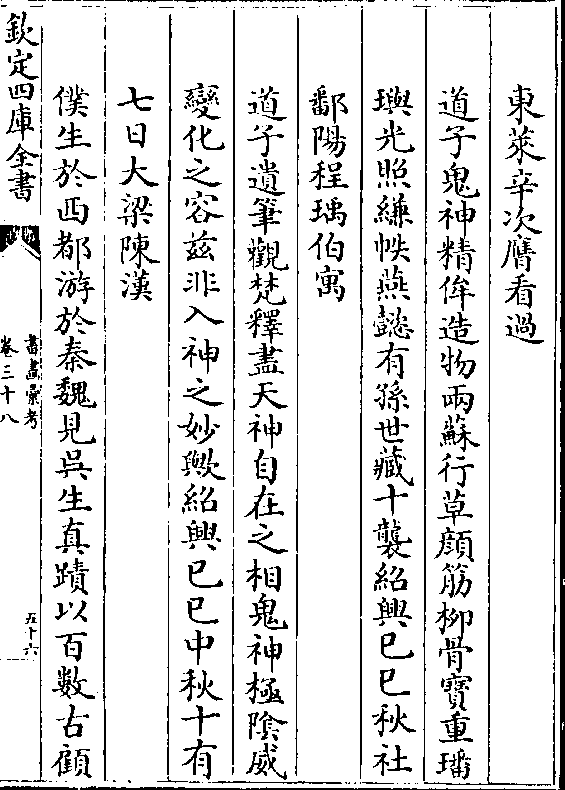 東萊辛次膺看過
道子鬼神精侔造物兩蘇行草顔筋柳骨寶重璠
璵光照縑帙燕懿有孫世藏十襲紹興已巳秋社
鄱陽程瑀伯寓
道子遺筆觀梵釋盡天神自在之相鬼神極陰威
變化之容兹非入神之妙歟紹興已巳中秋十有
七日大梁陳漢
僕生於西都游於秦魏見吳生真蹟以百數古顧
欽定四庫全書
書畫彙考
卷三十八
五十六